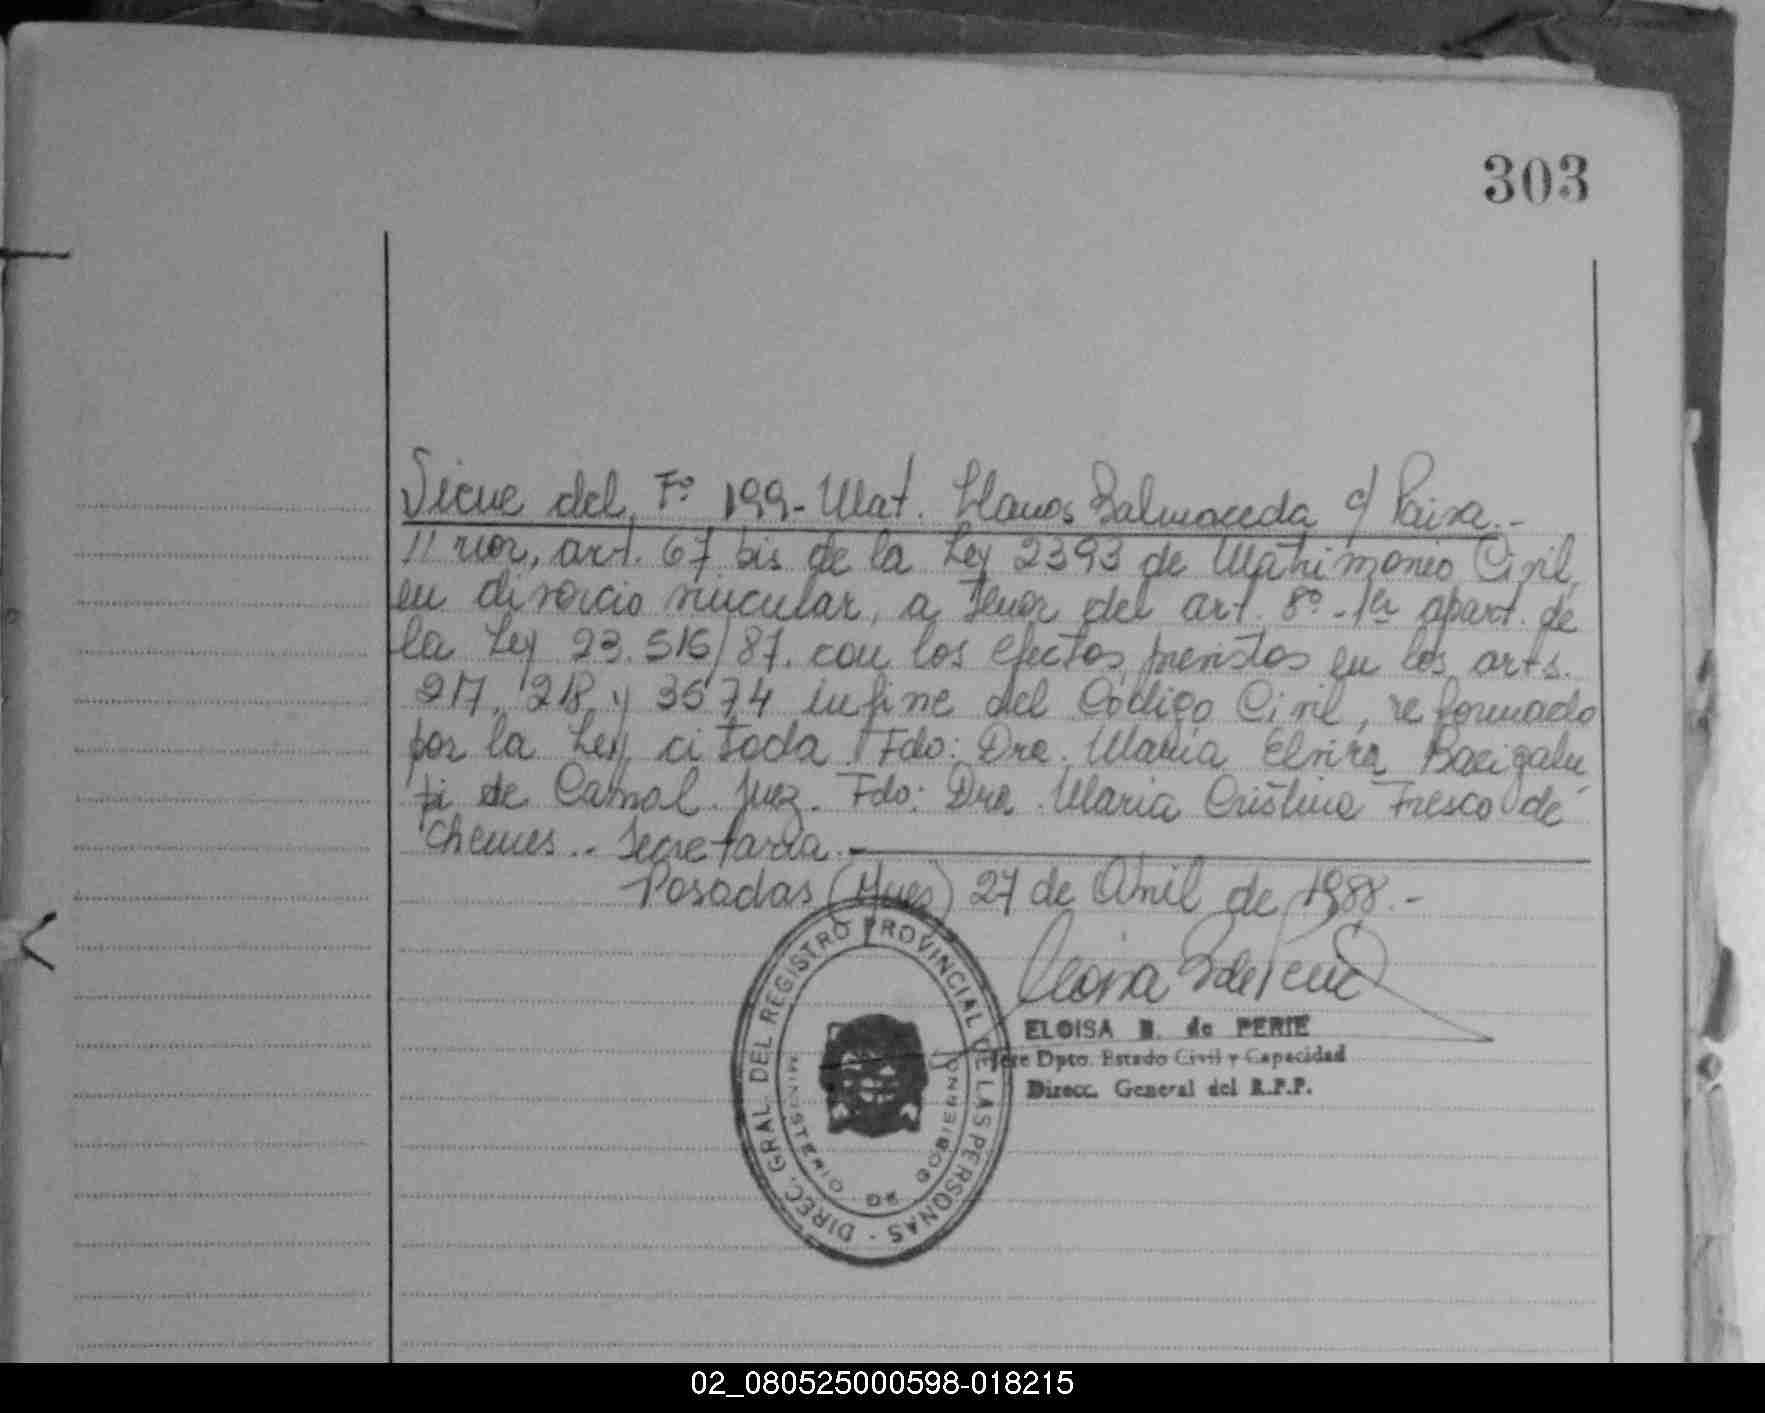 303
Sigue del Fº 199 - Mat. Llanos Balmaceda c/ Paiva.-
// rior, art. 67 bis de la Ley 2393 de Matrimonio Civil,
en divorcio vincular, a tenor del art. 8º - 1er apart. de
la Ley 23.515/87. con los efectos previstos en los arts.
217, 218 y 3574 infine del Código Civil, reformado
por la Ley citada. Fdo: Dra. Maria Elvira Bacigalu
pi de Camal. Juez. Fdo: Dra. Maria Cristina Fresco de
Chemes.. Secretaria.-
Posadas (Mnes) 27 de Abril de 1988.-
DIREC. GRAL. DEL REGISTRO PROVINCIAL DE LAS PERSONAS
MINISTERIO DE GOBIERNO
ELOISA B. de PERIE
Jefe Dpto. Estado Civil y Capacidad
Direcc. General del R.P.P.
02_080525000598-018215